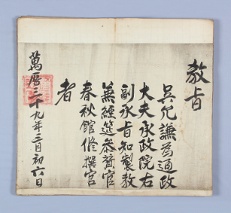 教旨
吳允謙爲通政
大夫承政院右
副承旨知製教
兼經筵參贊官
春秋館修撰官
者
萬曆三十九年三月初六日